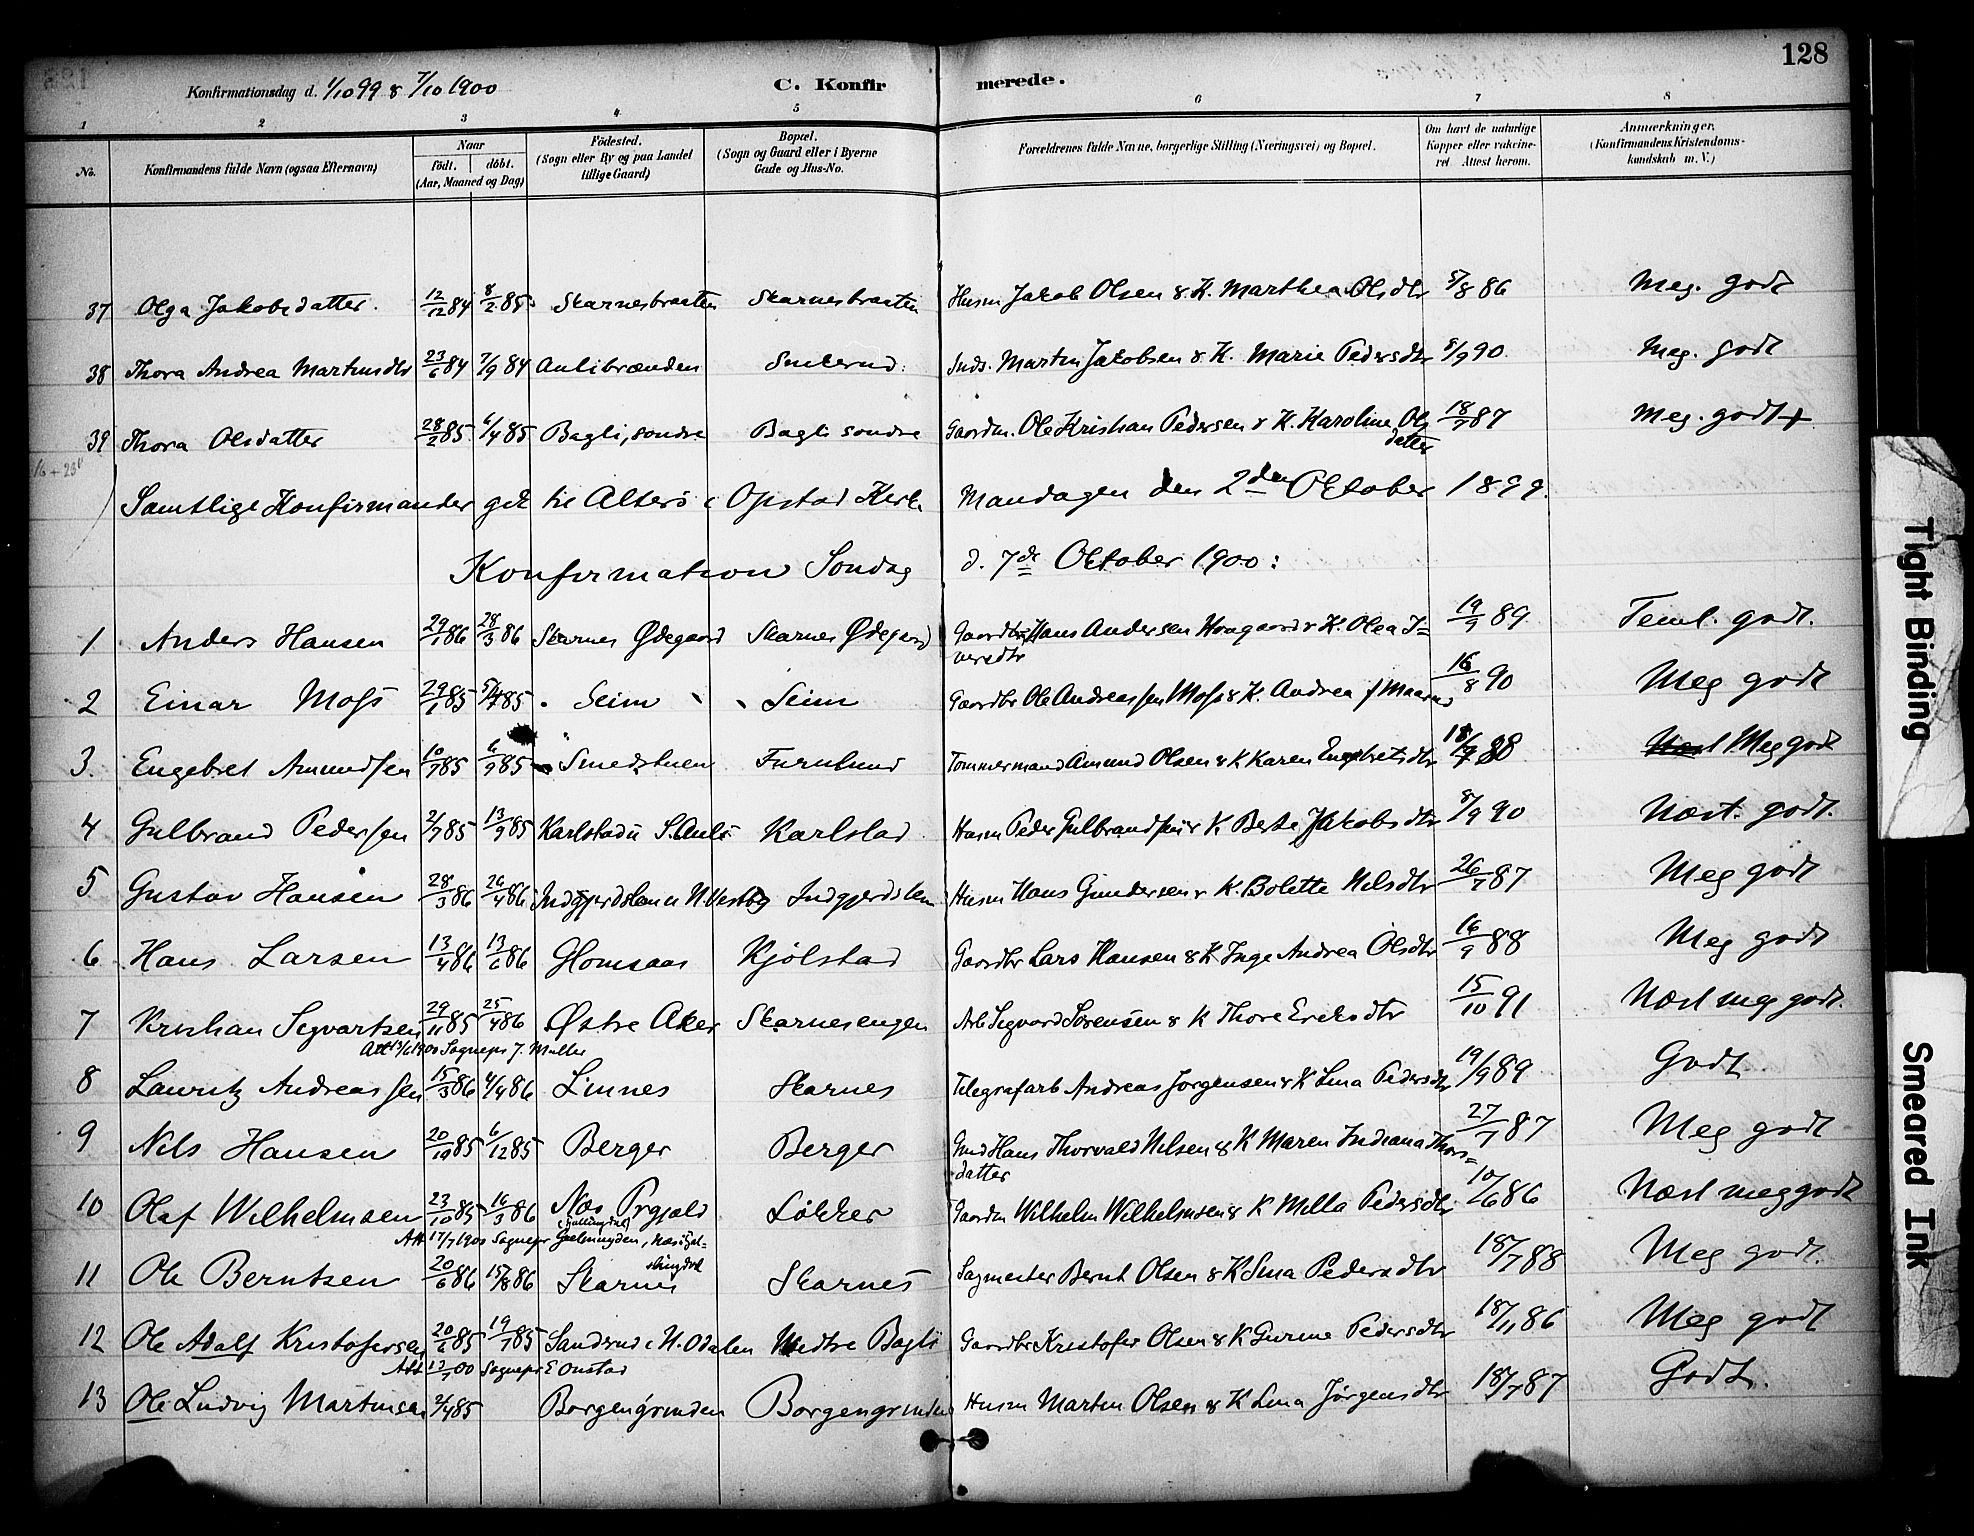 128
Konfirmationsdag d. 1/10 99 & 7/10 1900
C. Konfirmerede.
1 2 3 4 5 6 7 8
No.
Konfirmandens fulde Navn (ogsaa Efternavn)
Naar
födt. döbt.
(Aar, Maaned og Dag)
Födested.
(Sogn eller By og paa Landet
tillige Gaard)
Bopæl.
(Sogn og Gaard eller i Byerne
Gade og Hus-No.
Forældrenes fulde Navne, borgerlige Stilling (Næringsvei) og Bopæl.
Om havt de naturlige
Kopper eller vaccine-
ret. Attest herom.
Anmærkninger.
(Konfirmandens Kristendoms-
kundskab m. V.)
37 Olga Jakobsdatter. 12/12 84 8/2 85 Skarnesbraaten Skarnesbraaten Husm Jakob Olsen & K. Marthea Olsdtr 5/8 86 Meg. godt
38 Thora Andrea Martinsdtr 23/6 84 7/9 84 Aulibrænden Inds. Martin Jakobsen & K. Marie Pedersdtr 5/9 90 Meg. godt
39 Thora Olsdatter 28/2 85 6/4 85 Bagli, søndre Bagli søndre Gaardm. Ole Kristian Pedersen & K. Karoline Ols
datter 18/7 87 Meg. godt +
Samtlige Konfirmander gik til Alters i Opstad Kirke Mandagen den 2den Oktober 1899.
Konfirmation Søndag d. 7de Oktober 1900:
1 Anders Hansen 29/1 86 28/3 86 Skarnes Ødegaard Skarnes Ødegaard Gaardbr Hans Andersen & K. Olea I=
versdtr 19/9 89 Teml. godt.
2 Einar Moss 29/1 85 5/4 85 Seim Seim Gaardbr Ole Andreassen Moss & K. Andrea f 16/8 90 Meg godt
3. Engebret Amundsen 10/7 85 6/9 85 Smedstuen Furulund Tømmermand Amund Olsen & K Karen Engebretsdtr 18/7 88 Meg godt
4 Gulbrand Pedersen 2/7 85 13/9 85 Karlstad u S. Auli Karlstad Husm Peder Gulbrandsen & K Berte Jakobsdtr 8/9 90 Næst. godt.
5 Gustav Hansen 28/3 86 26/4 86 Indgjerdslen u N. Vestby Indgjerdslen Husm Hans Gundersen & K. Bolette Nilsdtr 26/7 87 Meg godt
6 Hans Larsen 13/4 86 13/6 86 Glomsaas Kjølstad Gaardbr Lars Hansen & K Inge Andrea Olsdtr 16/9 88 Meg godt
7 Kristian Segvartsen 29/11 85 25/4 86 Østre Aker Skarnesengen Arb Segvard Sørensen & K Thore Eriksdtr 15/10 91 Næst meg godt.
Att 13/6 1900 Sognepr J. Müller
8 Lauritz Andreassen 15/3 86 4/4 86 Linnes Skarnes Telegrafarb Andreas Jørgensen & K Lina Pedersdtr 19/9 89 Godt
9 Nils Hansen 20/10 85 6/12 85 Berger Berger Hans Thorvald Nilsen & K Maren Indiana Thors=
datter 27/7 87 Meg godt
10 Olaf Wilhelmsen 23/10 85 16/3 86 Næs Prgjæld
(Hallingdal) Løkker Gaardm Wilhelm Wilhelmsen & K Milla Pedersdtr 10/6 86 Næst meg godt
Att 17/7 1900 Sognepr Gulmyden, Næs i Hal=
lingdal
11 Ole Berntsen 20/6 86 15/8 86 Skarnes Skarnes Sagmester Bernt Olsen & K Lina Pedersdtr 18/7 88 Meg godt.
12 Ole Adolf Kristofersen 20/6 85 19/7 85 Sandsrud i N. Odalen Nedre Bagli Gaardbr Kristofer Olsen & K Gurine Pedersdtr 18/11 86 Meg godt
Att 13/7 00 Sognepr E Onstad
13 Ole Ludvig Martinsen 2/4 85 Borgengrinden Borgengrinden Husm Martin Olsen & K Lina Jørgensdtr 18/7 87 Godt.
Tight Binding
Smeared Ink